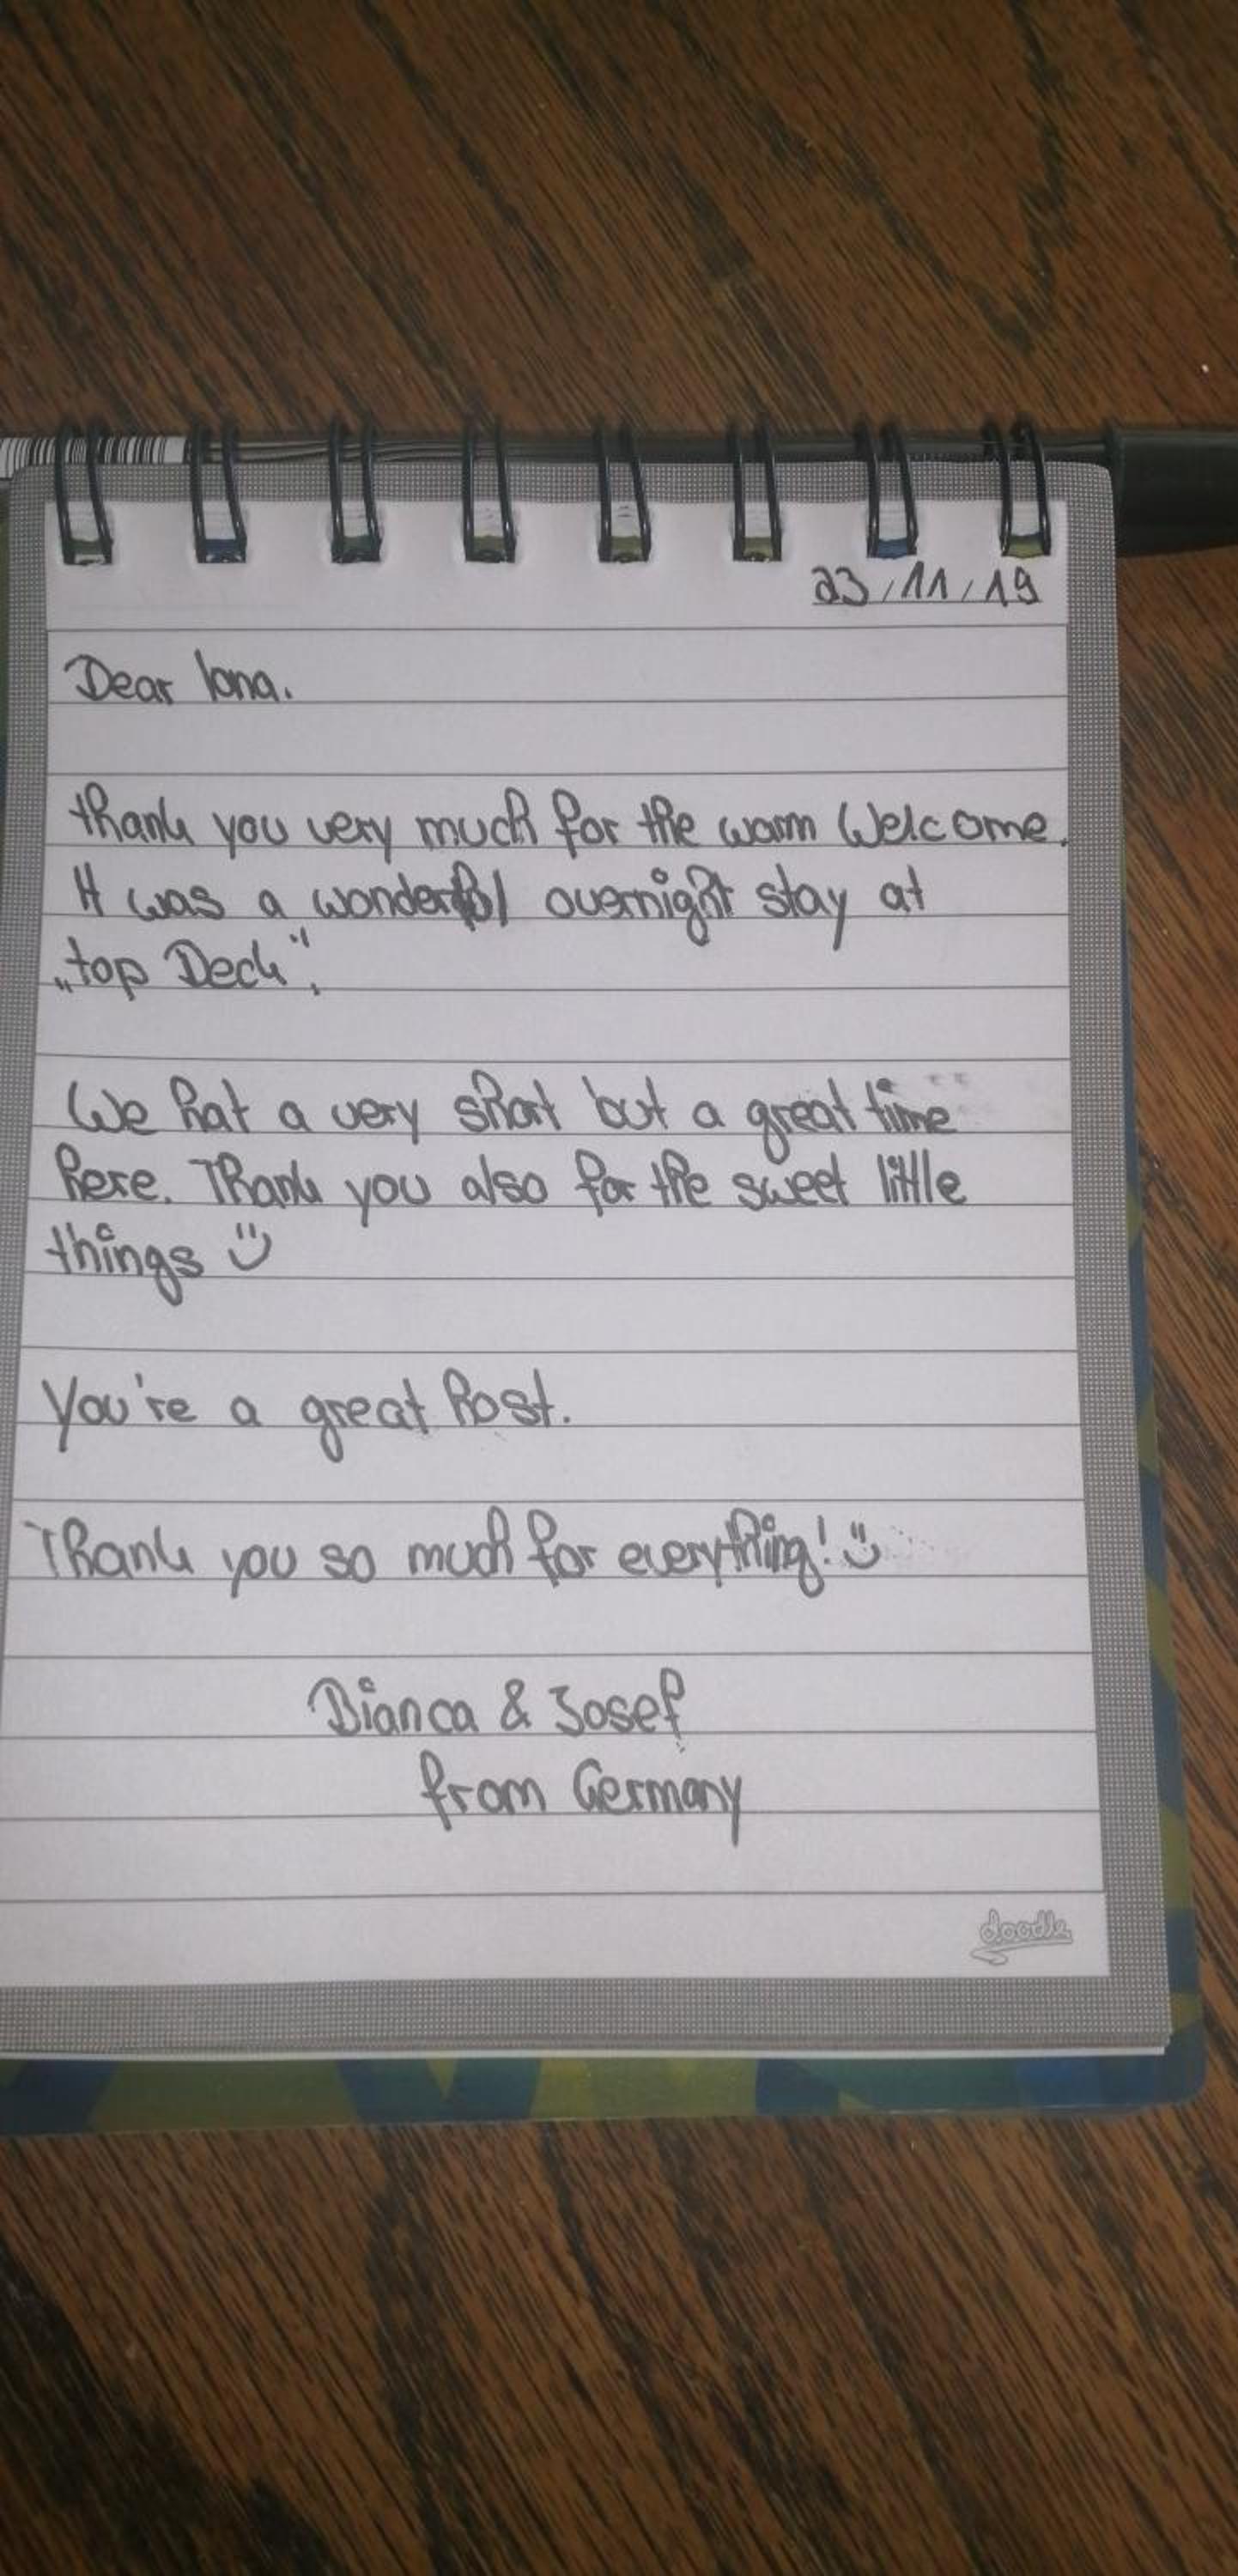 23/11/19
Dear Iona.
thank you very much for the warm Welcome.
It was a wonderful overnight stay at
„top Deck“.
We hat a very short but a great time
here. Thank you also for the sweet little
things ☺
You're a great host.
Thank you so much for everything! ☺
Bianca & Josef
from Germany
doodle